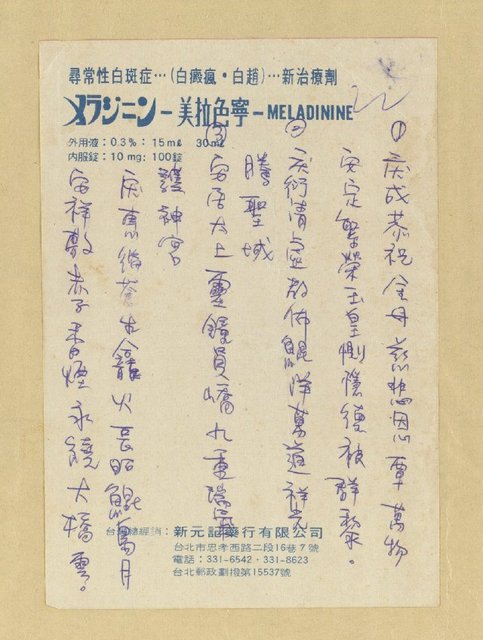 尋常性白斑症…(白癜瘋・白趙)…新治療劑
メラジニン－美拉色寧－MELADININE
外用液：0.3%：15mℓ 30mℓ
内服錠：10mg：100錠
① 庆成恭祝金母慈悲恩覃萬物
安定繁榮玉皇惻隱德被群黎。
② 庆衍清虛群佛鯤洋萬道祥光
騰聖域
③ 安居太上靈鐘員嶠九重瑞
護神宮
庆惠蒼生龕火長昭鯤島月
安祥敷赤子香煙永繞大橋雲。
台灣總經銷：新元記藥行有限公司
台北市忠孝西路二段16巷7號
電話：331-6542・331-8623
台北郵政劃撥第15537號